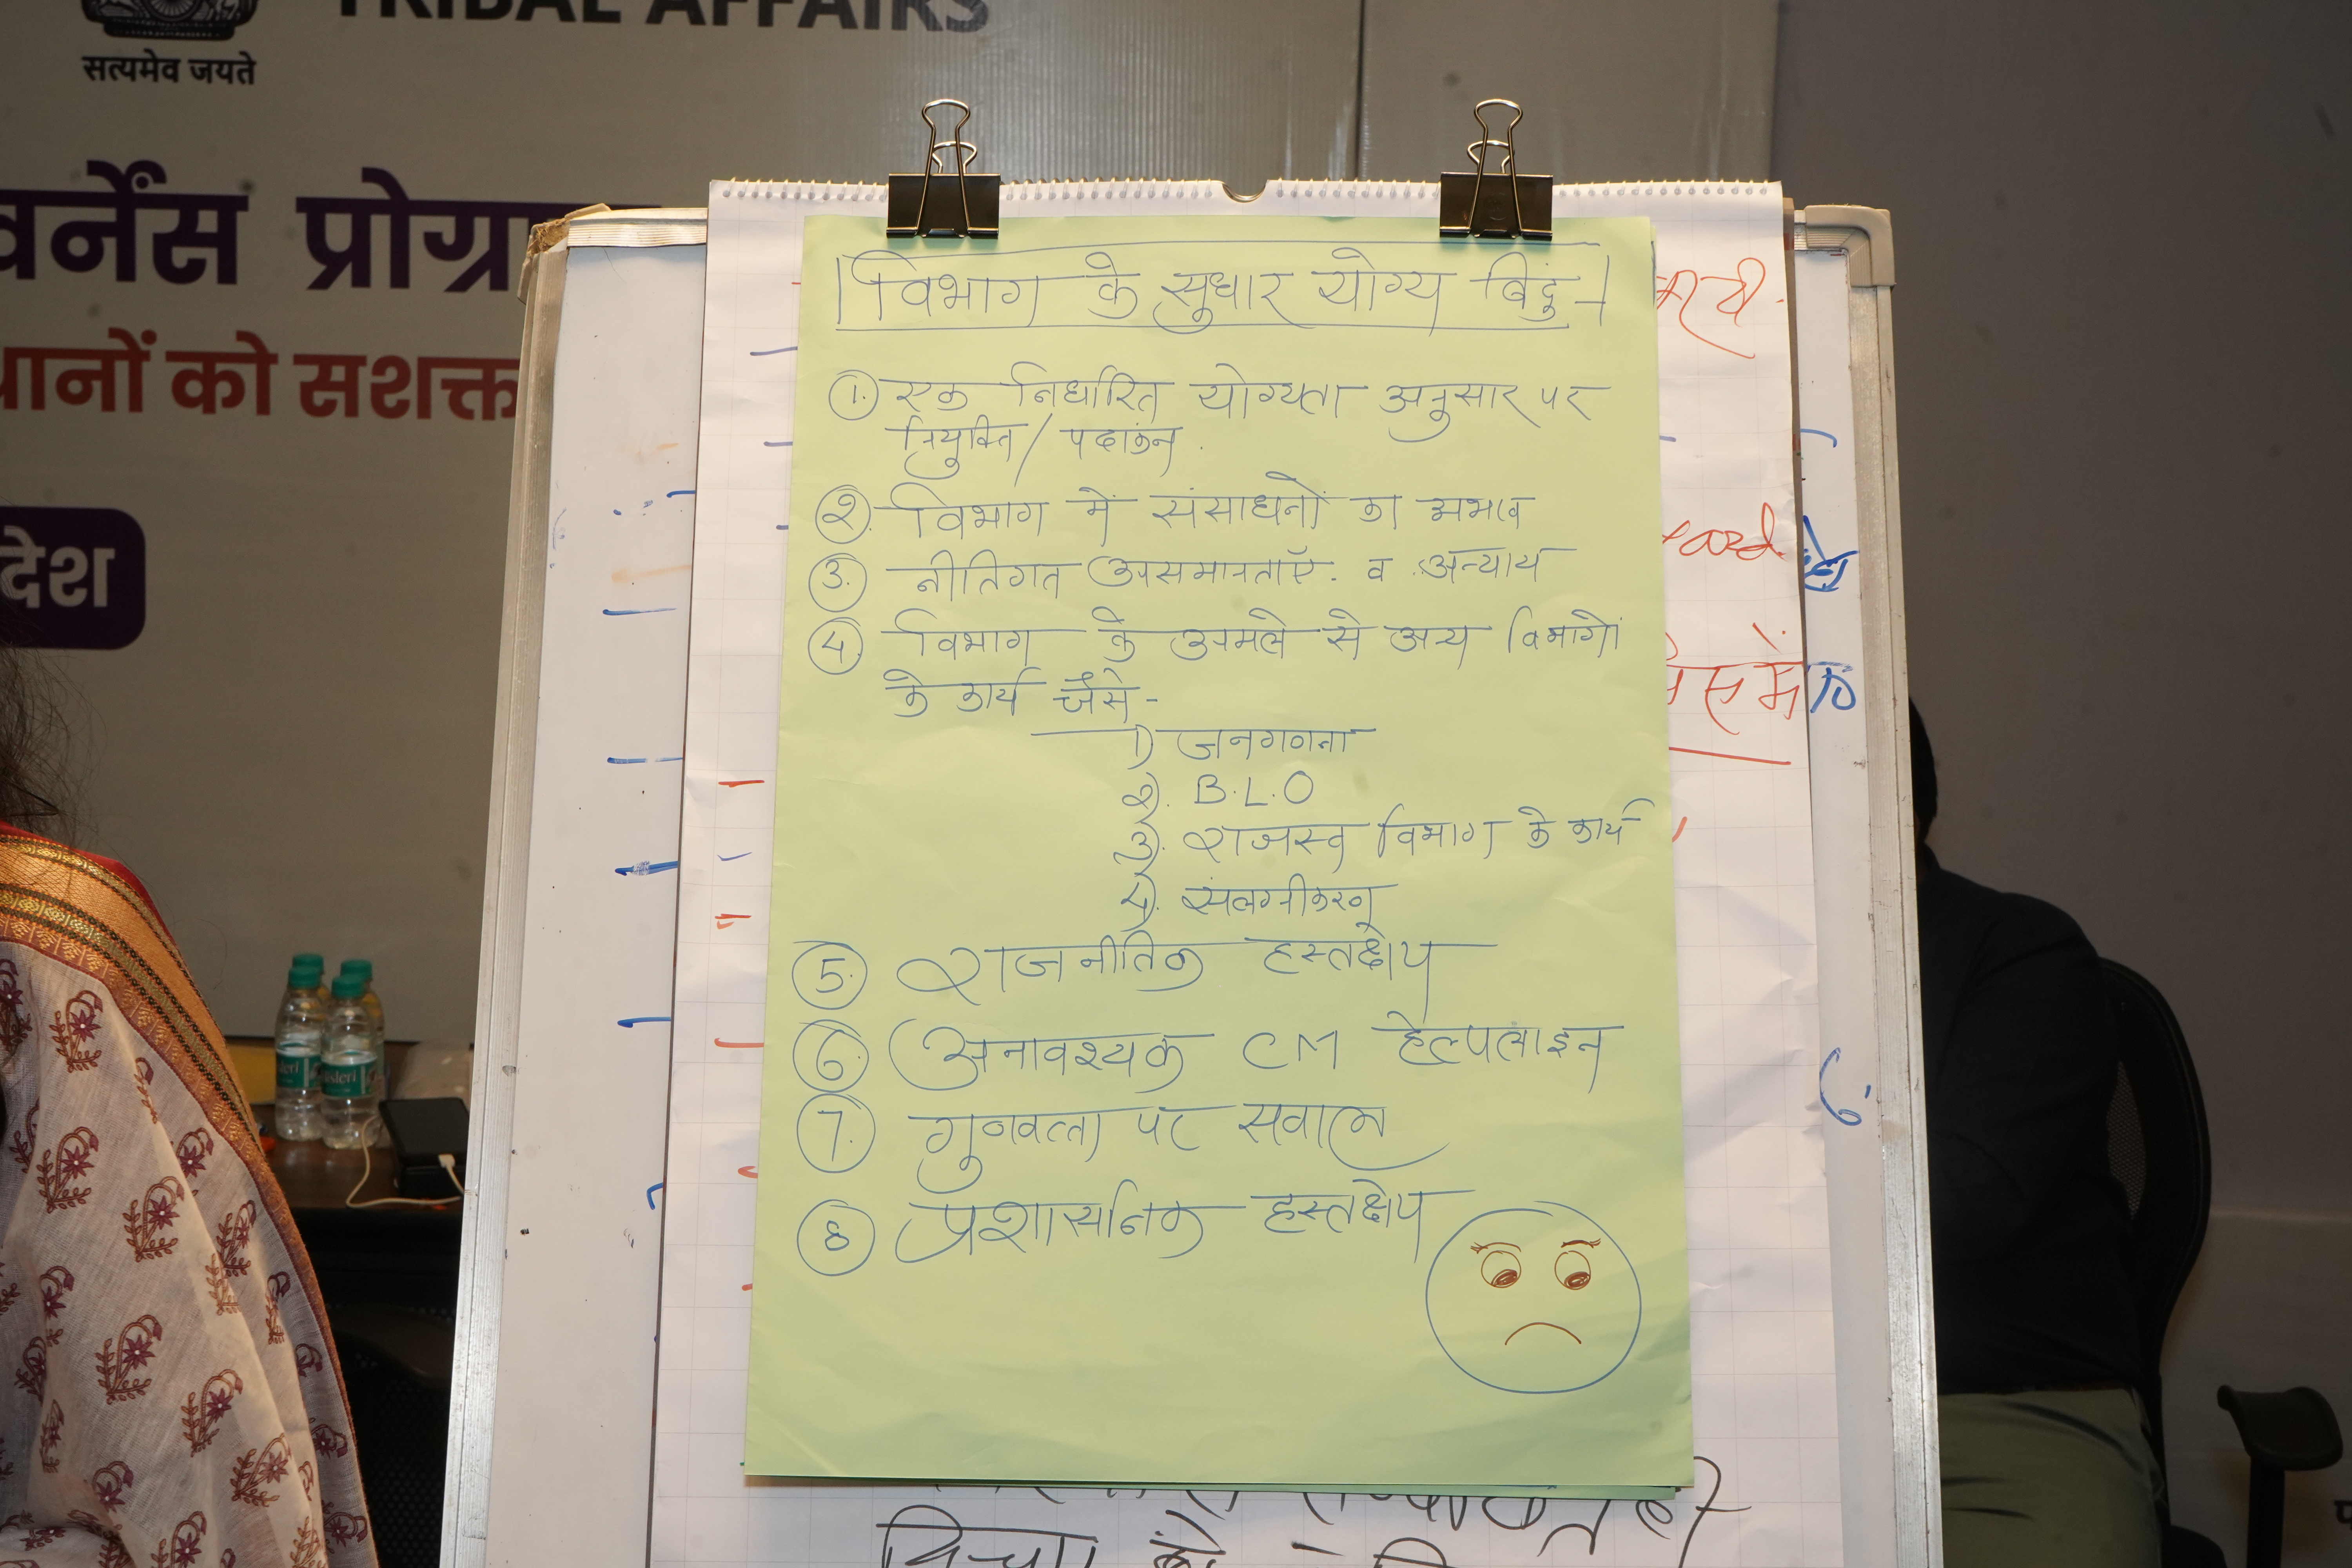 TRIBAL AFFAIRS
सत्यमेव जयते
वर्नेंस प्रोग्रा
थानों को सशक्त
देश
विभाग के सुधार योग्य बिंदु -
1. एक निर्धारित योग्यता अनुसार पर
नियुक्ति / पदांकन.
2. विभाग में संसाधनों का अभाव
3. नीतिगत असमानताएँ. व अन्याय
4. विभाग के अमले से अन्य विभागों
के कार्य जैसे -
1) जनगणना
2). B.L.O
3). राजस्व विभाग के कार्य
4). संलग्नीकरण
5. राजनीतिक हस्तक्षेप
6. अनावश्यक CM हेल्पलाइन
7. गुणवत्ता पर सवाल
8 प्रशासनिक हस्तक्षेप
Bisleri